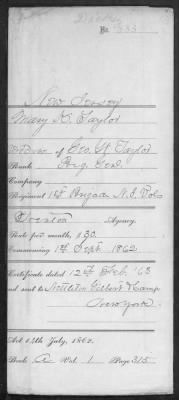 No 555
New Jersey
Mary K. Taylor
Widow of Geo. W. Taylor
Rank Brig Genl.
Company
Regiment 1st Brigade N.J. Vols
Trenton Agency.
Rate per month, $30.
Commencing 1st Sept 1862
Certificate dated 12th Feb '63
and sent to Nettleton Gilbert & Camp
New York
Act 14th July, 1862.
Book A Vol. 1 Page 315